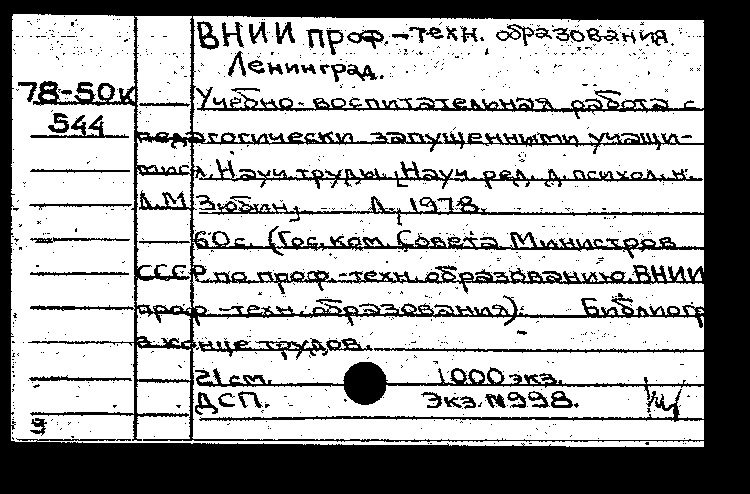 ВНИИ проф.-техн. образования.
Ленинград.
78-50к Учебно-воспитательная работа с
544 педагогически запущенными учащи-
мися. Науч. труды. [Науч. ред. д. психол. н.
Л.М. Зюбин]. Л., 1978.
60 с. (Гос. ком. Совета Министров
СССР по проф.-техн. образованию. ВНИИ
проф.-техн. образования). Библиогр.
в конце трудов.
21 см. 1000 экз.
ДСП. Экз. №998.